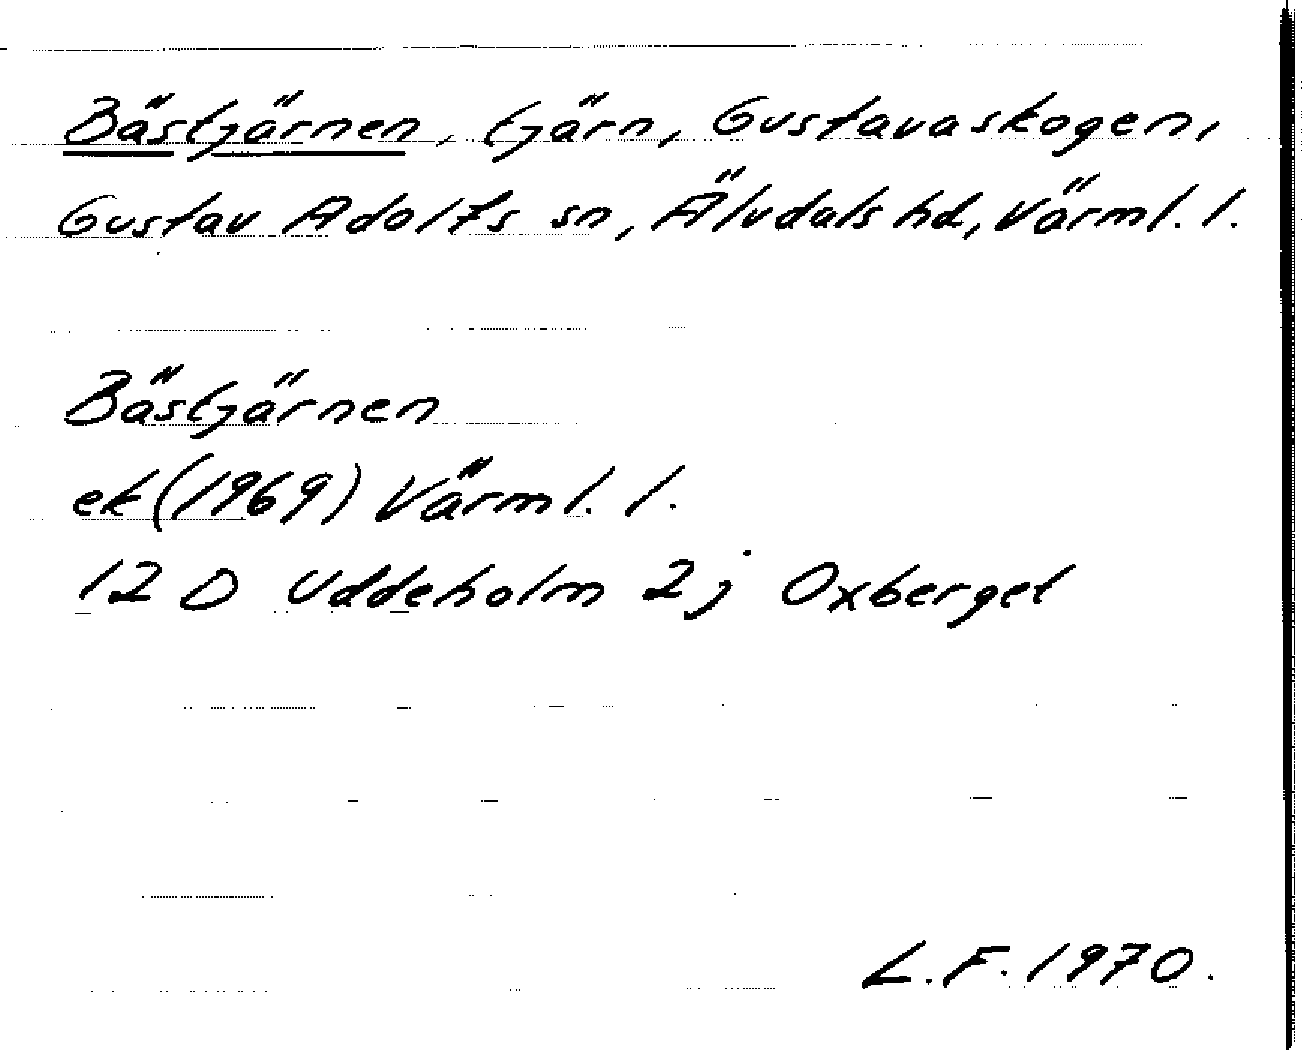 Bästjärnen, tjärn, Gustavaskogen,
Gustav Adolfs sn, Älvdals hd, Värml. l.
Bästjärnen
ek (1969) Värml. l.
12 D Uddeholm 2j Oxberget
L.F. 1970.